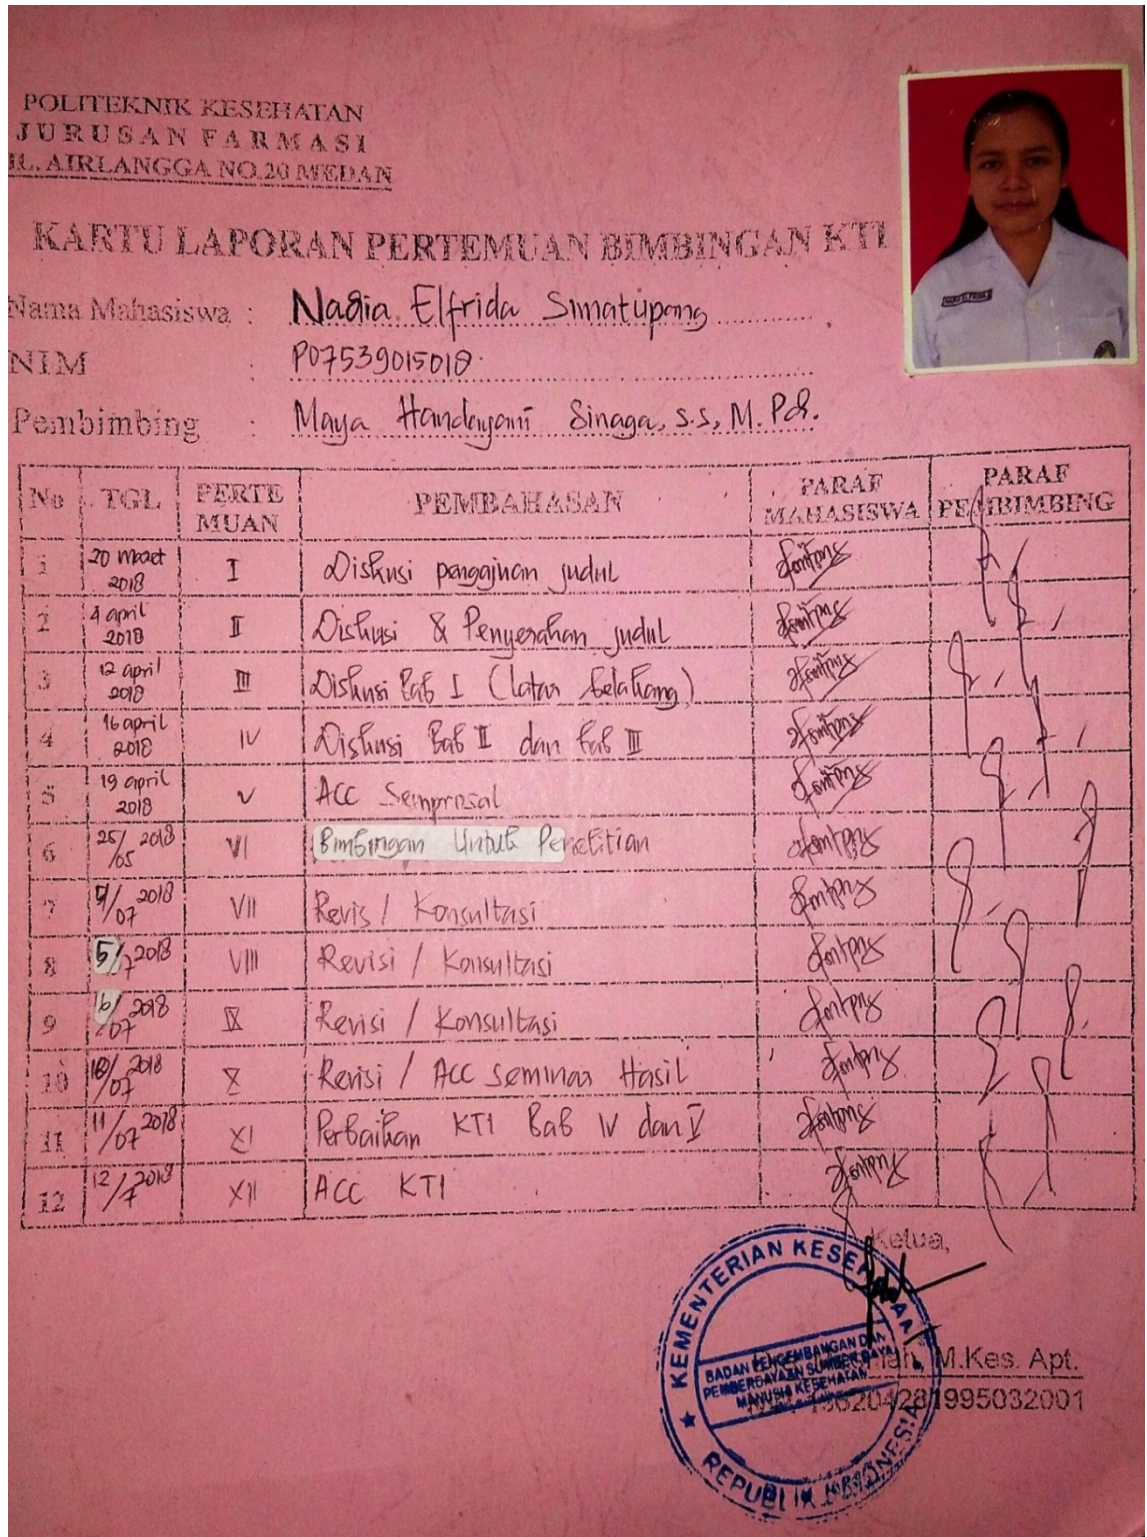 POLITEKNIK KESEHATAN
JURUSAN FARMASI
JL. AIRLANGGA NO.20 MEDAN
KARTU LAPORAN PERTEMUAN BIMBINGAN KTI
Nama Mahasiswa : Nadia Elfrida Simatupang
NIM : P07539015018
Pembimbing : Maya Handayani Sinaga, S.S, M.Pd.
No TGL PERTEMUAN PEMBAHASAN PARAF MAHASISWA PARAF PEMBIMBING
1 20 maret 2018 I Diskusi pengajuan judul
2 4 april 2018 II Diskusi & Penyerahan judul
3 12 april 2018 III Diskusi Bab I (latar belakang)
4 16 april 2018 IV Diskusi Bab II dan bab III
5 19 april 2018 V ACC Semprosal
6 25/05 2018 VI Bimbingan Untuk Penelitian
7 /07 2018 VII Revis / Konsultasi
8 5/7 2018 VIII Revisi / Konsultasi
9 /07 2018 IX Revisi / Konsultasi
10 10/07 2018 X Revisi / ACC seminar Hasil
11 11/07 2018 XI Perbaikan KTI Bab IV dan V
12 12/7 2018 XII ACC KTI
Ketua,
KEMENTERIAN KESEHATAN
BADAN PENGEMBANGAN DAN
PEMBERDAYAAN SUMBER DAYA
MANUSIA KESEHATAN
REPUBLIK INDONESIA
M.Kes. Apt.
196204281995032001